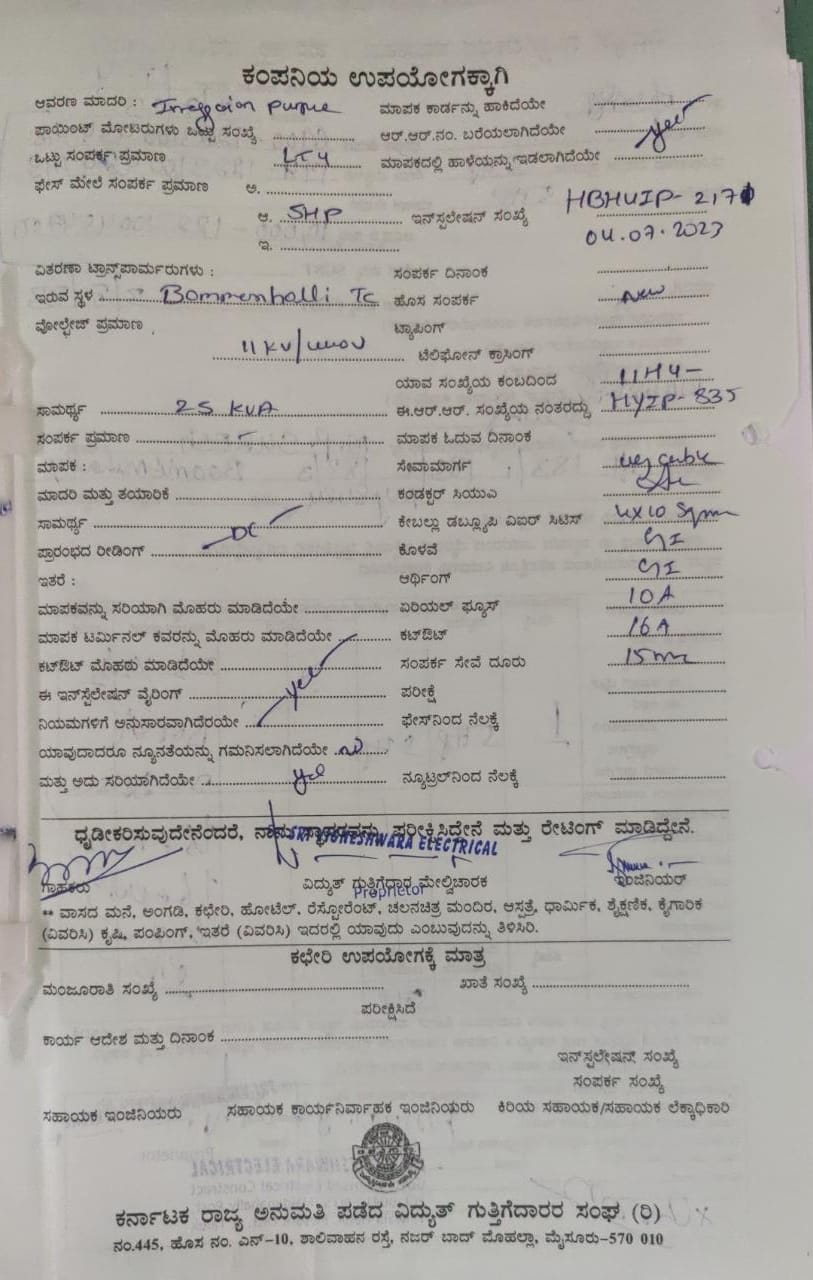 ಕಂಪನಿಯ ಉಪಯೋಗಕ್ಕಾಗಿ
ಆವರಣ ಮಾದರಿ : ಮಾಪಕ ಕಾರ್ಡನ್ನು ಹಾಕಿದೆಯೇ
ಪಾಯಿಂಟ್ ಮೋಟರುಗಳು ಒಟ್ಟು ಸಂಖ್ಯೆ ಆರ್.ಆರ್.ನಂ. ಬರೆಯಲಾಗಿದೆಯೇ yes
ಒಟ್ಟು ಸಂಪರ್ಕ ಪ್ರಮಾಣ LT4 ಮಾಪಕದಲ್ಲಿ ಹಾಳೆಯನ್ನು ಇಡಲಾಗಿದೆಯೇ
ಫೇಸ್ ಮೇಲೆ ಸಂಪರ್ಕ ಪ್ರಮಾಣ ಅ.
ಆ. 5HP ಇನ್‌ಸ್ಪಲೇಷನ್ ಸಂಖ್ಯೆ HBHUIP-217
ಇ. 04.07.2023
ವಿತರಣಾ ಟ್ರಾನ್ಸ್‌ಪಾರ್ಮರುಗಳು : ಸಂಪರ್ಕ ದಿನಾಂಕ
ಇರುವ ಸ್ಥಳ Bommenhalli Tc ಹೊಸ ಸಂಪರ್ಕ New
ವೋಲ್ಟೇಜ್ ಪ್ರಮಾಣ ಟ್ಯಾಪಿಂಗ್
11KV/ ಟೆಲಿಫೋನ್ ಕ್ರಾಸಿಂಗ್
ಯಾವ ಸಂಖ್ಯೆಯ ಕಂಬದಿಂದ 11H4-
ಸಾಮರ್ಥ್ಯ 25 KVA ಈ.ಆರ್.ಆರ್. ಸಂಖ್ಯೆಯ ನಂತರದ್ದು HYIP-835
ಸಂಪರ್ಕ ಪ್ರಮಾಣ ಮಾಪಕ ಓದುವ ದಿನಾಂಕ
ಮಾಪಕ : ಸೇವಾಮಾರ್ಗ
ಮಾದರಿ ಮತ್ತು ತಯಾರಿಕೆ ಕಂಡಕ್ಟರ್ ಸಿಯುವಿ
ಸಾಮರ್ಥ್ಯ DC ಕೇಬಲ್ಲು ಡಬ್ಲ್ಯೂಪಿ ವಿಐರ್ ಸಿಟಿಸ್ 4x10 Sqmm
ಪ್ರಾರಂಭದ ರೀಡಿಂಗ್ ಕೊಳವೆ GI
ಇತರೆ : ಆರ್ಥಿಂಗ್ GI
ಮಾಪಕವನ್ನು ಸರಿಯಾಗಿ ಮೊಹರು ಮಾಡಿದೆಯೇ ಏರಿಯಲ್ ಫ್ಯೂಸ್ 10A
ಮಾಪಕ ಟರ್ಮಿನಲ್ ಕವರನ್ನು ಮೊಹರು ಮಾಡಿದೆಯೇ ಕಟ್‌ಔಟ್ 16A
ಕಟ್‌ಔಟ್ ಮೊಹರು ಮಾಡಿದೆಯೇ ಸಂಪರ್ಕ ಸೇವೆ ದೂರು
ಈ ಇನ್‌ಸ್ಪೆಲೇಷನ್ ವೈರಿಂಗ್ yes ಪರೀಕ್ಷೆ
ನಿಯಮಗಳಿಗೆ ಅನುಸಾರವಾಗಿದೆರಯೇ ಫೇಸ್‌ನಿಂದ ನೆಲಕ್ಕೆ
ಯಾವುದಾದರೂ ನ್ಯೂನತೆಯನ್ನು ಗಮನಿಸಲಾಗಿದೆಯೇ
ಮತ್ತು ಅದು ಸರಿಯಾಗಿದೆಯೇ yes ನ್ಯೂಟ್ರಲ್‌ನಿಂದ ನೆಲಕ್ಕೆ
ಧೃಡೀಕರಿಸುವುದೇನೆಂದರೆ, ನಾನು ಪರೀಕ್ಷಿಸಿದ್ದೇನೆ ಮತ್ತು ರೇಟಿಂಗ್ ಮಾಡಿದ್ದೇನೆ.
ELECTRICAL
ಗ್ರಾಹಕರು ವಿದ್ಯುತ್ ಗುತ್ತಿಗೆದ್ದಾರ ಮೇಲ್ವಿಚಾರಕ ಇಂಜಿನಿಯರ್
Proprietor
** ವಾಸದ ಮನೆ, ಅಂಗಡಿ, ಕಛೇರಿ, ಹೋಟೆಲ್, ರೆಸ್ಟೋರೆಂಟ್, ಚಲನಚಿತ್ರ ಮಂದಿರ, ಆಸ್ಪತ್ರೆ, ಧಾರ್ಮಿಕ, ಶೈಕ್ಷಣಿಕ, ಕೈಗಾರಿಕೆ
(ವಿವರಿಸಿ) ಕೃಷಿ, ಪಂಪಿಂಗ್, ಇತರೆ (ವಿವರಿಸಿ) ಇದರಲ್ಲಿ ಯಾವುದು ಎಂಬುವುದನ್ನು ತಿಳಿಸಿರಿ.
ಕಛೇರಿ ಉಪಯೋಗಕ್ಕೆ ಮಾತ್ರ
ಮಂಜೂರಾತಿ ಸಂಖ್ಯೆ ಖಾತೆ ಸಂಖ್ಯೆ
ಪರೀಕ್ಷಿಸಿದೆ
ಕಾರ್ಯ ಆದೇಶ ಮತ್ತು ದಿನಾಂಕ
ಇನ್‌ಸ್ಪಲೇಷನ್ ಸಂಖ್ಯೆ
ಸಂಪರ್ಕ ಸಂಖ್ಯೆ
ಸಹಾಯಕ ಇಂಜಿನಿಯರು ಸಹಾಯಕ ಕಾರ್ಯನಿರ್ವಾಹಕ ಇಂಜಿನಿಯರು ಕಿರಿಯ ಸಹಾಯಕ/ಸಹಾಯಕ ಲೆಕ್ಕಾಧಿಕಾರಿ
ಕರ್ನಾಟಕ ರಾಜ್ಯ ಅನುಮತಿ ಪಡೆದ ವಿದ್ಯುತ್ ಗುತ್ತಿಗೆದಾರರ ಸಂಘ (ರಿ)
ನಂ.445, ಹೊಸ ನಂ. ಎನ್-10, ಶಾಲಿವಾಹನ ರಸ್ತೆ, ನಜರ್ ಬಾದ್ ಮೊಹಲ್ಲಾ, ಮೈಸೂರು-570 010